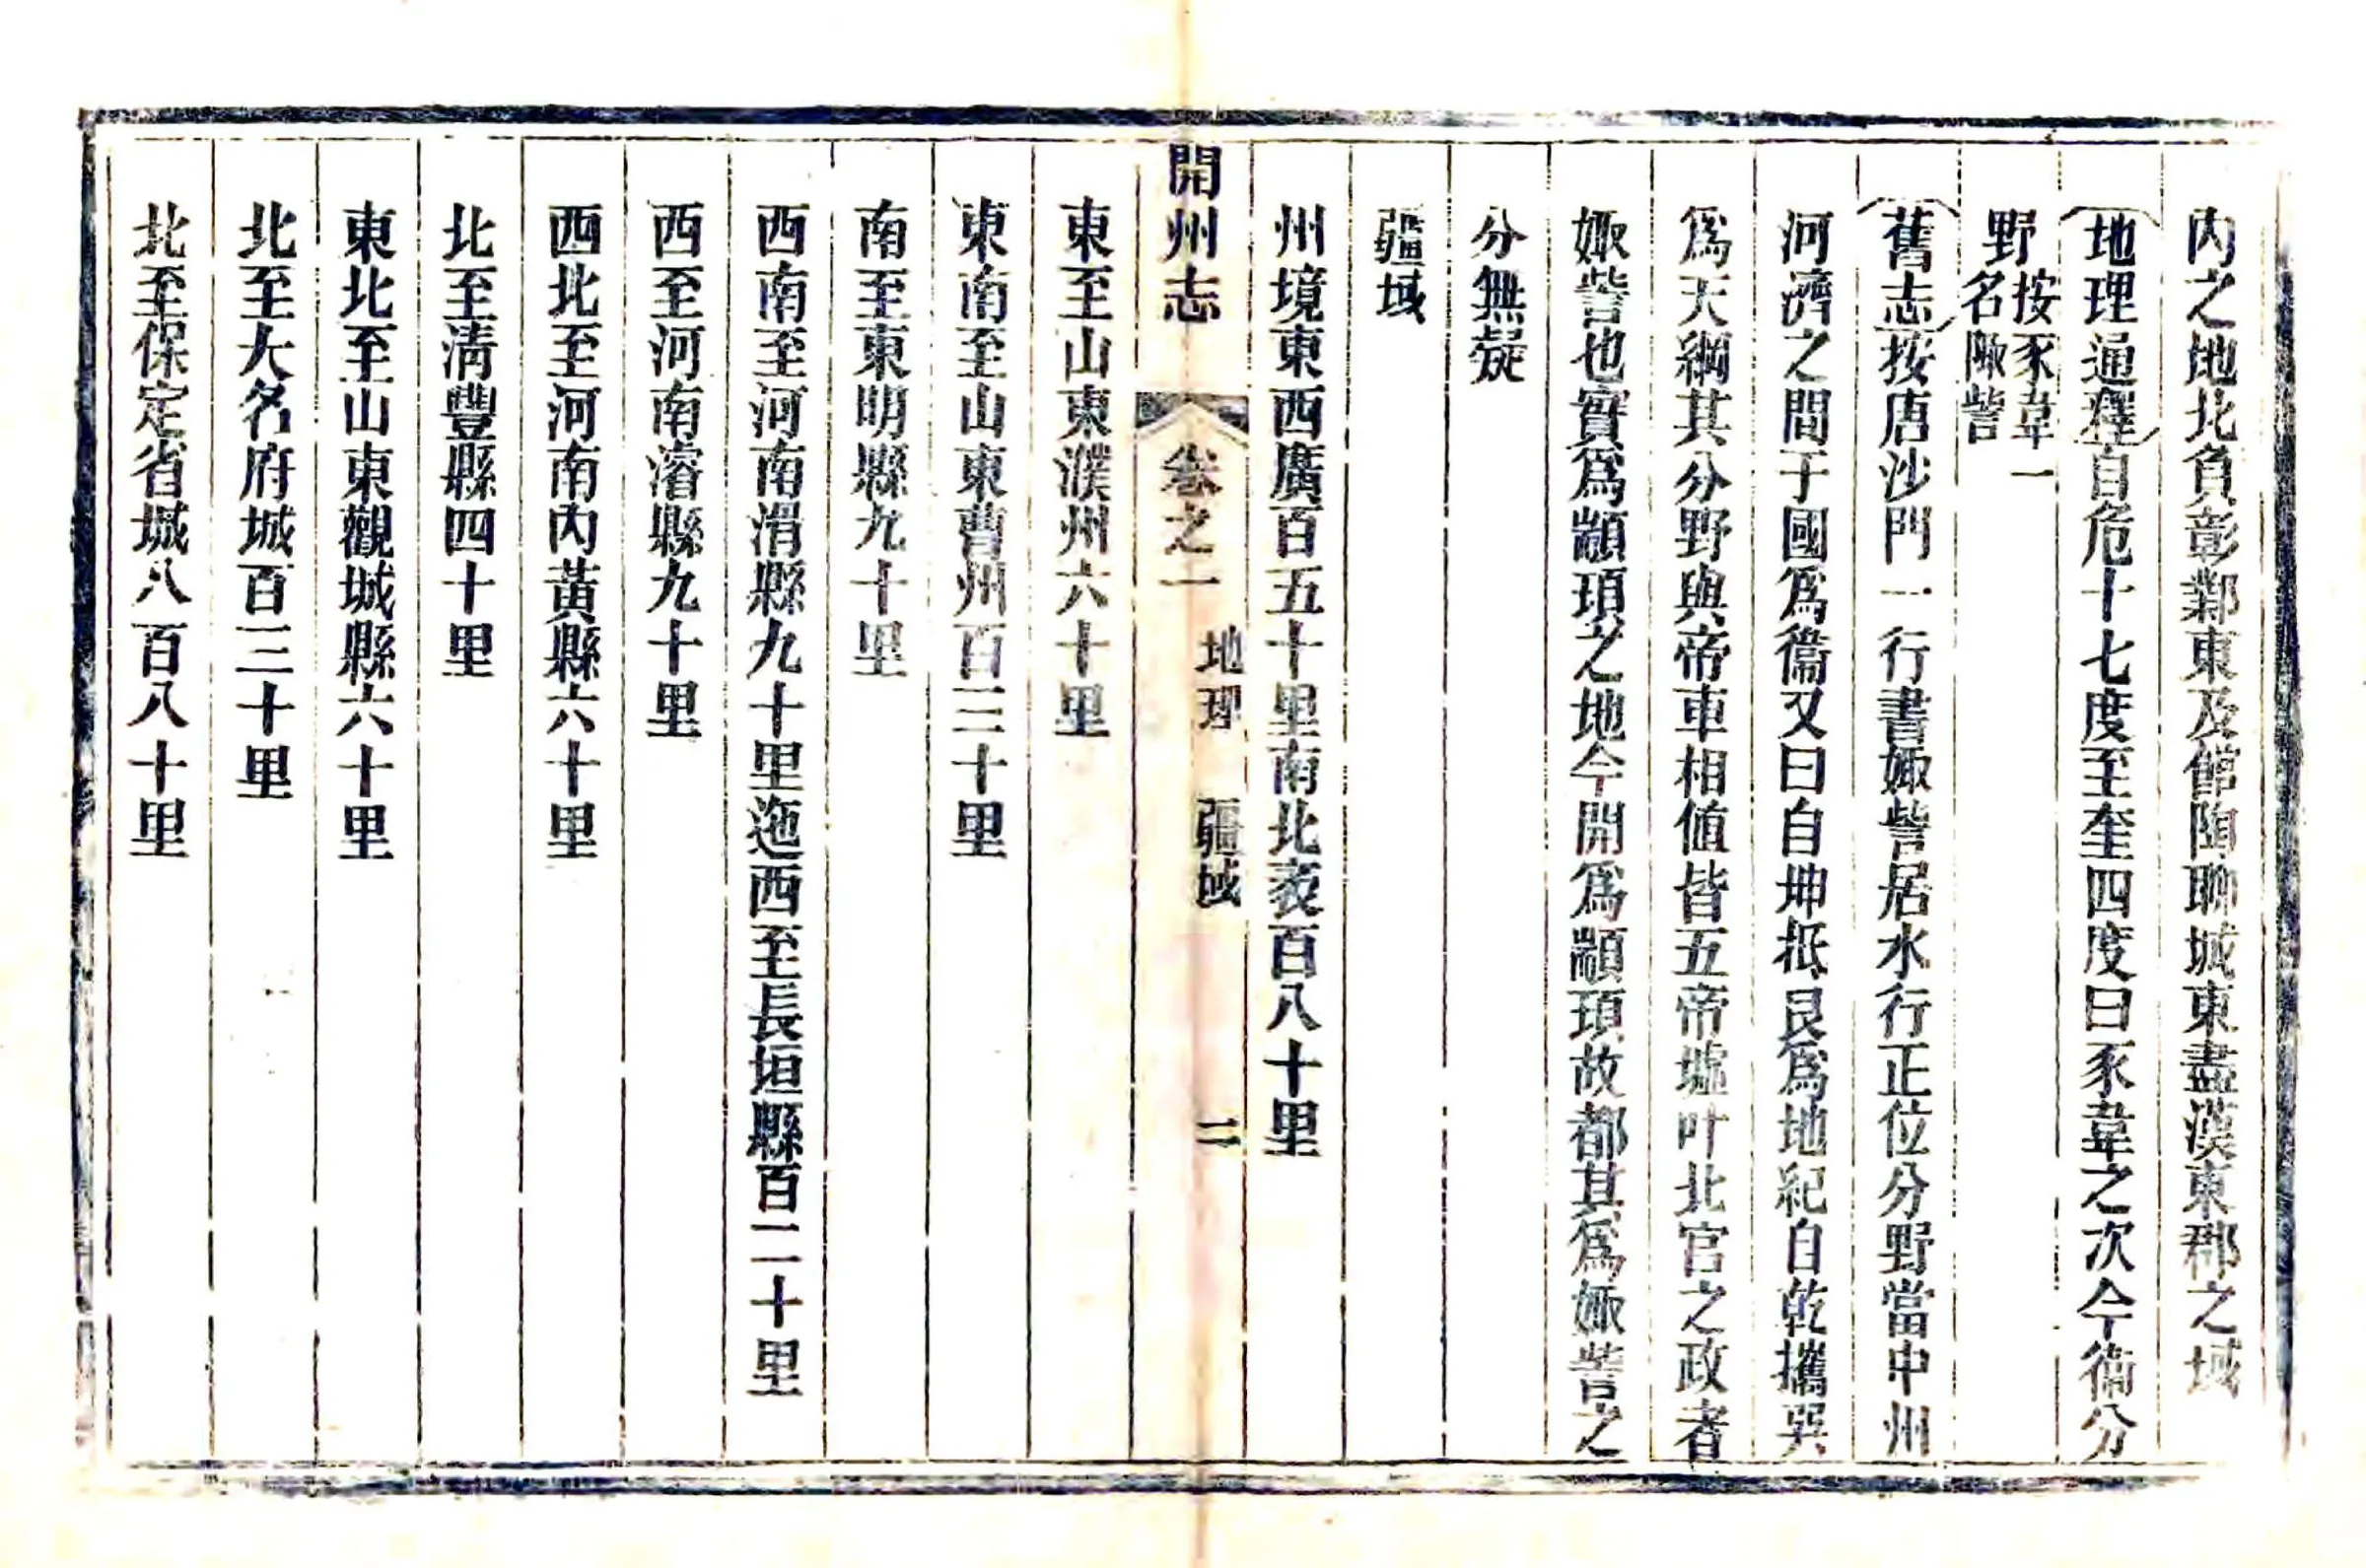 內之地北負彰鄴東及館陶聊城東盡漢東郡之域
地理通釋自危十七度至奎四度曰豕韋之次今衞分
野按豕韋一名陬訾
舊志按唐沙門一行書娵訾居水行正位分野當中州
河濟之間于國爲衞又曰自坤抵艮爲地紀自乾攜巽
爲天綱其分野與帝車相値皆五帝墟叶北宮之政者
娵訾也實爲顓頊之地今開爲顓頊故都其爲娵訾之
分無疑
疆域
州境東西廣百五十里南北袤百八十里
開州志 卷之一 地理 疆域 二
東至山東濮州六十里
東南至山東曹州百三十里
南至東明縣九十里
西南至河南滑縣九十里迤西至長垣縣百二十里
西至河南濬縣九十里
西北至河南內黃縣六十里
北至淸豐縣四十里
東北至山東觀城縣六十里
北至大名府城百三十里
北至保定省城八百八十里